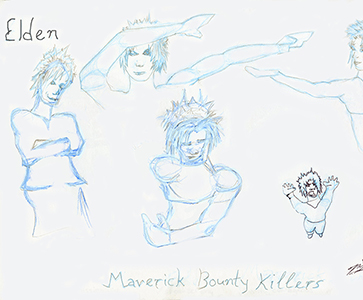 Elden
Maverick Bounty Killers